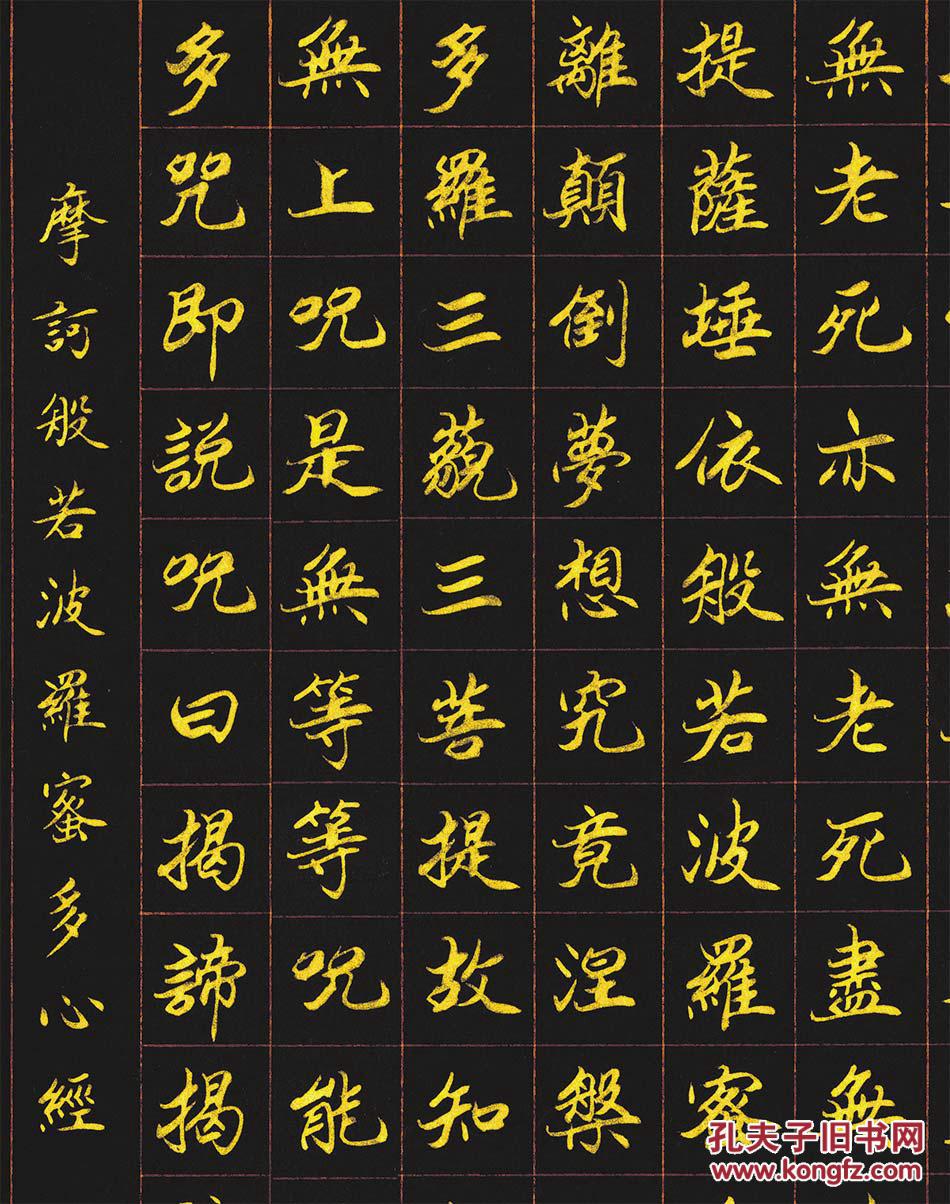 無老死亦無老死盡無
提薩埵依般若波羅蜜
離顛倒夢想究竟涅槃
多羅三藐三菩提故知
無上咒是無等等咒能
多咒即説咒曰揭諦揭
摩訶般若波羅蜜多心經
孔夫子旧书网
www.kongfz.com